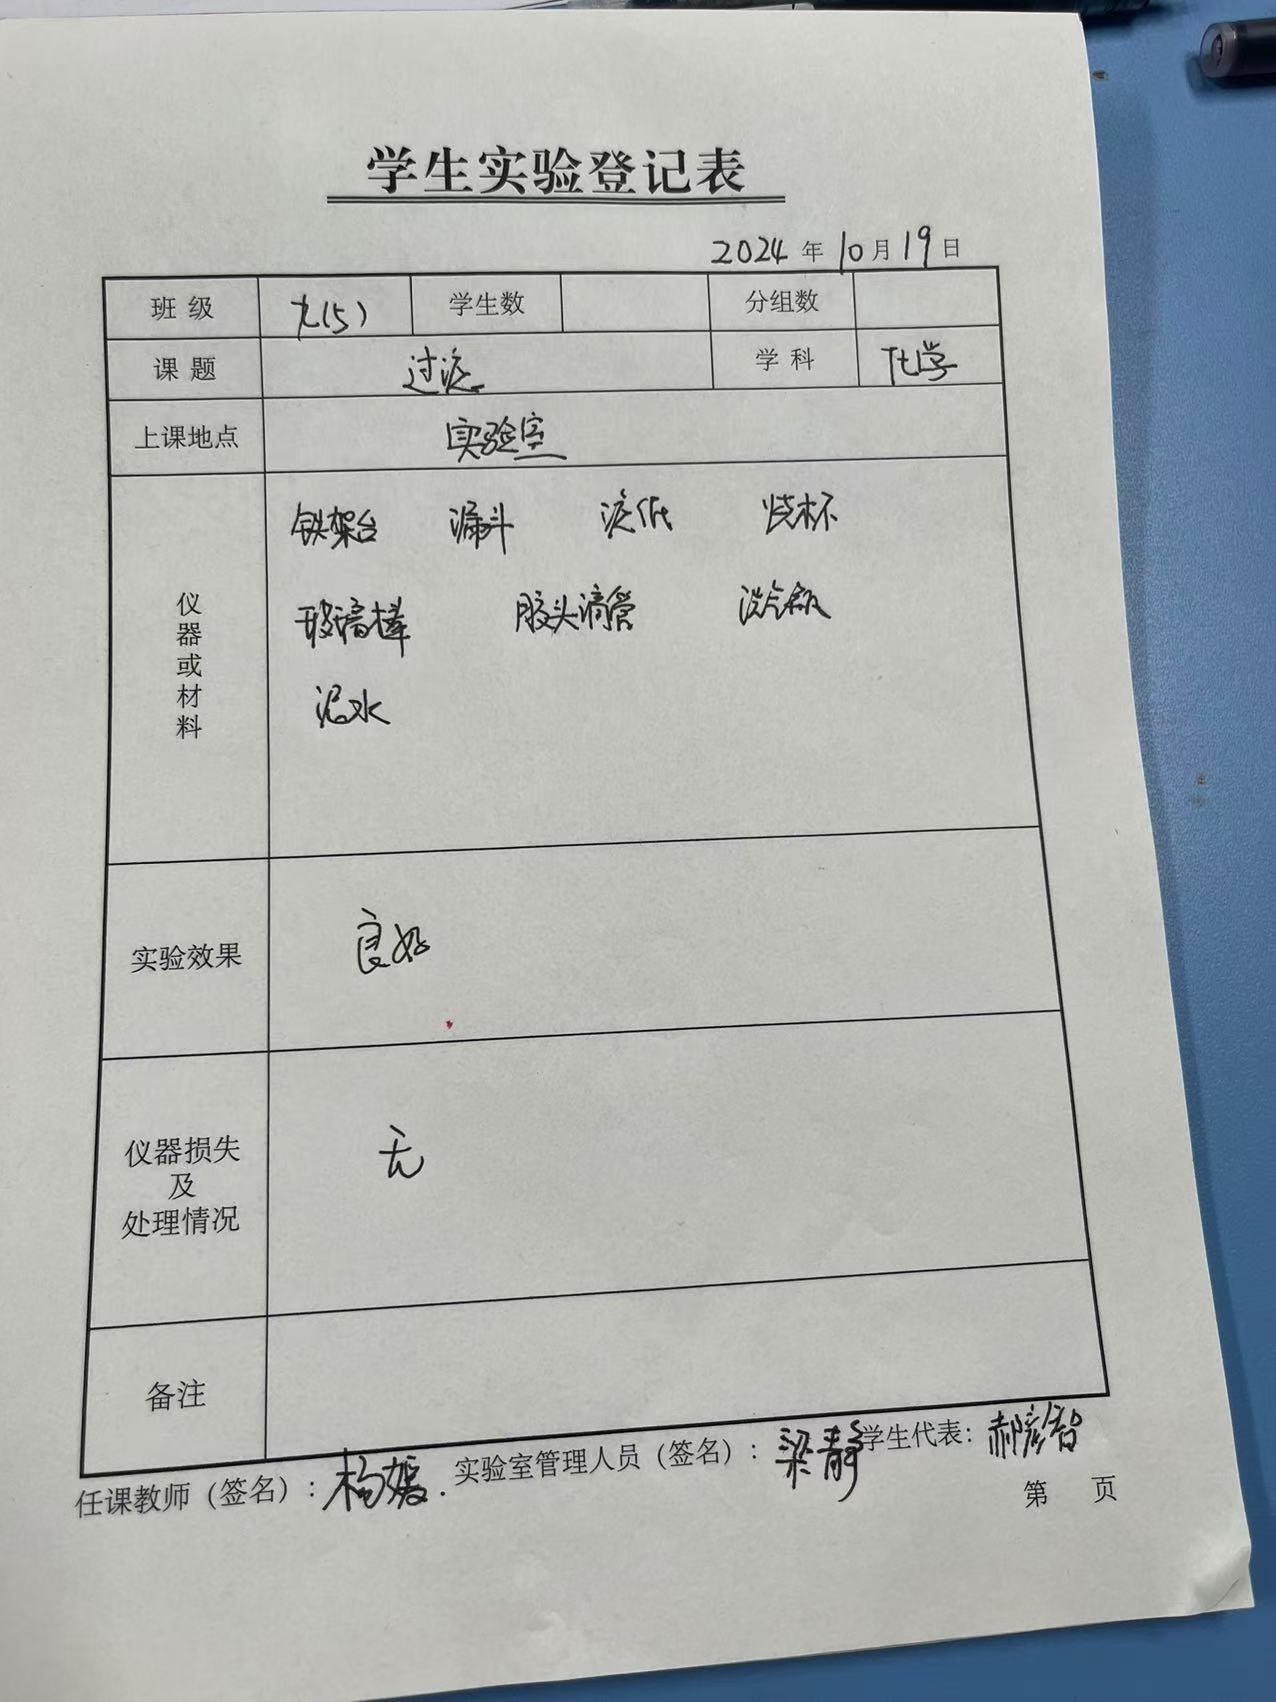 学生实验登记表
2024 年 10 月 19 日
班 级 九(5) 学生数 分组数
课 题 过滤 学 科 化学
上课地点 实验室
仪器或材料
铁架台 漏斗 滤纸 烧杯
玻璃棒 胶头滴管 洗瓶
泥水
实验效果 良好
仪器损失
及
处理情况
无
备注
任课教师（签名）：杨媛 实验室管理人员（签名）：梁静 学生代表：郝彦智
第 页